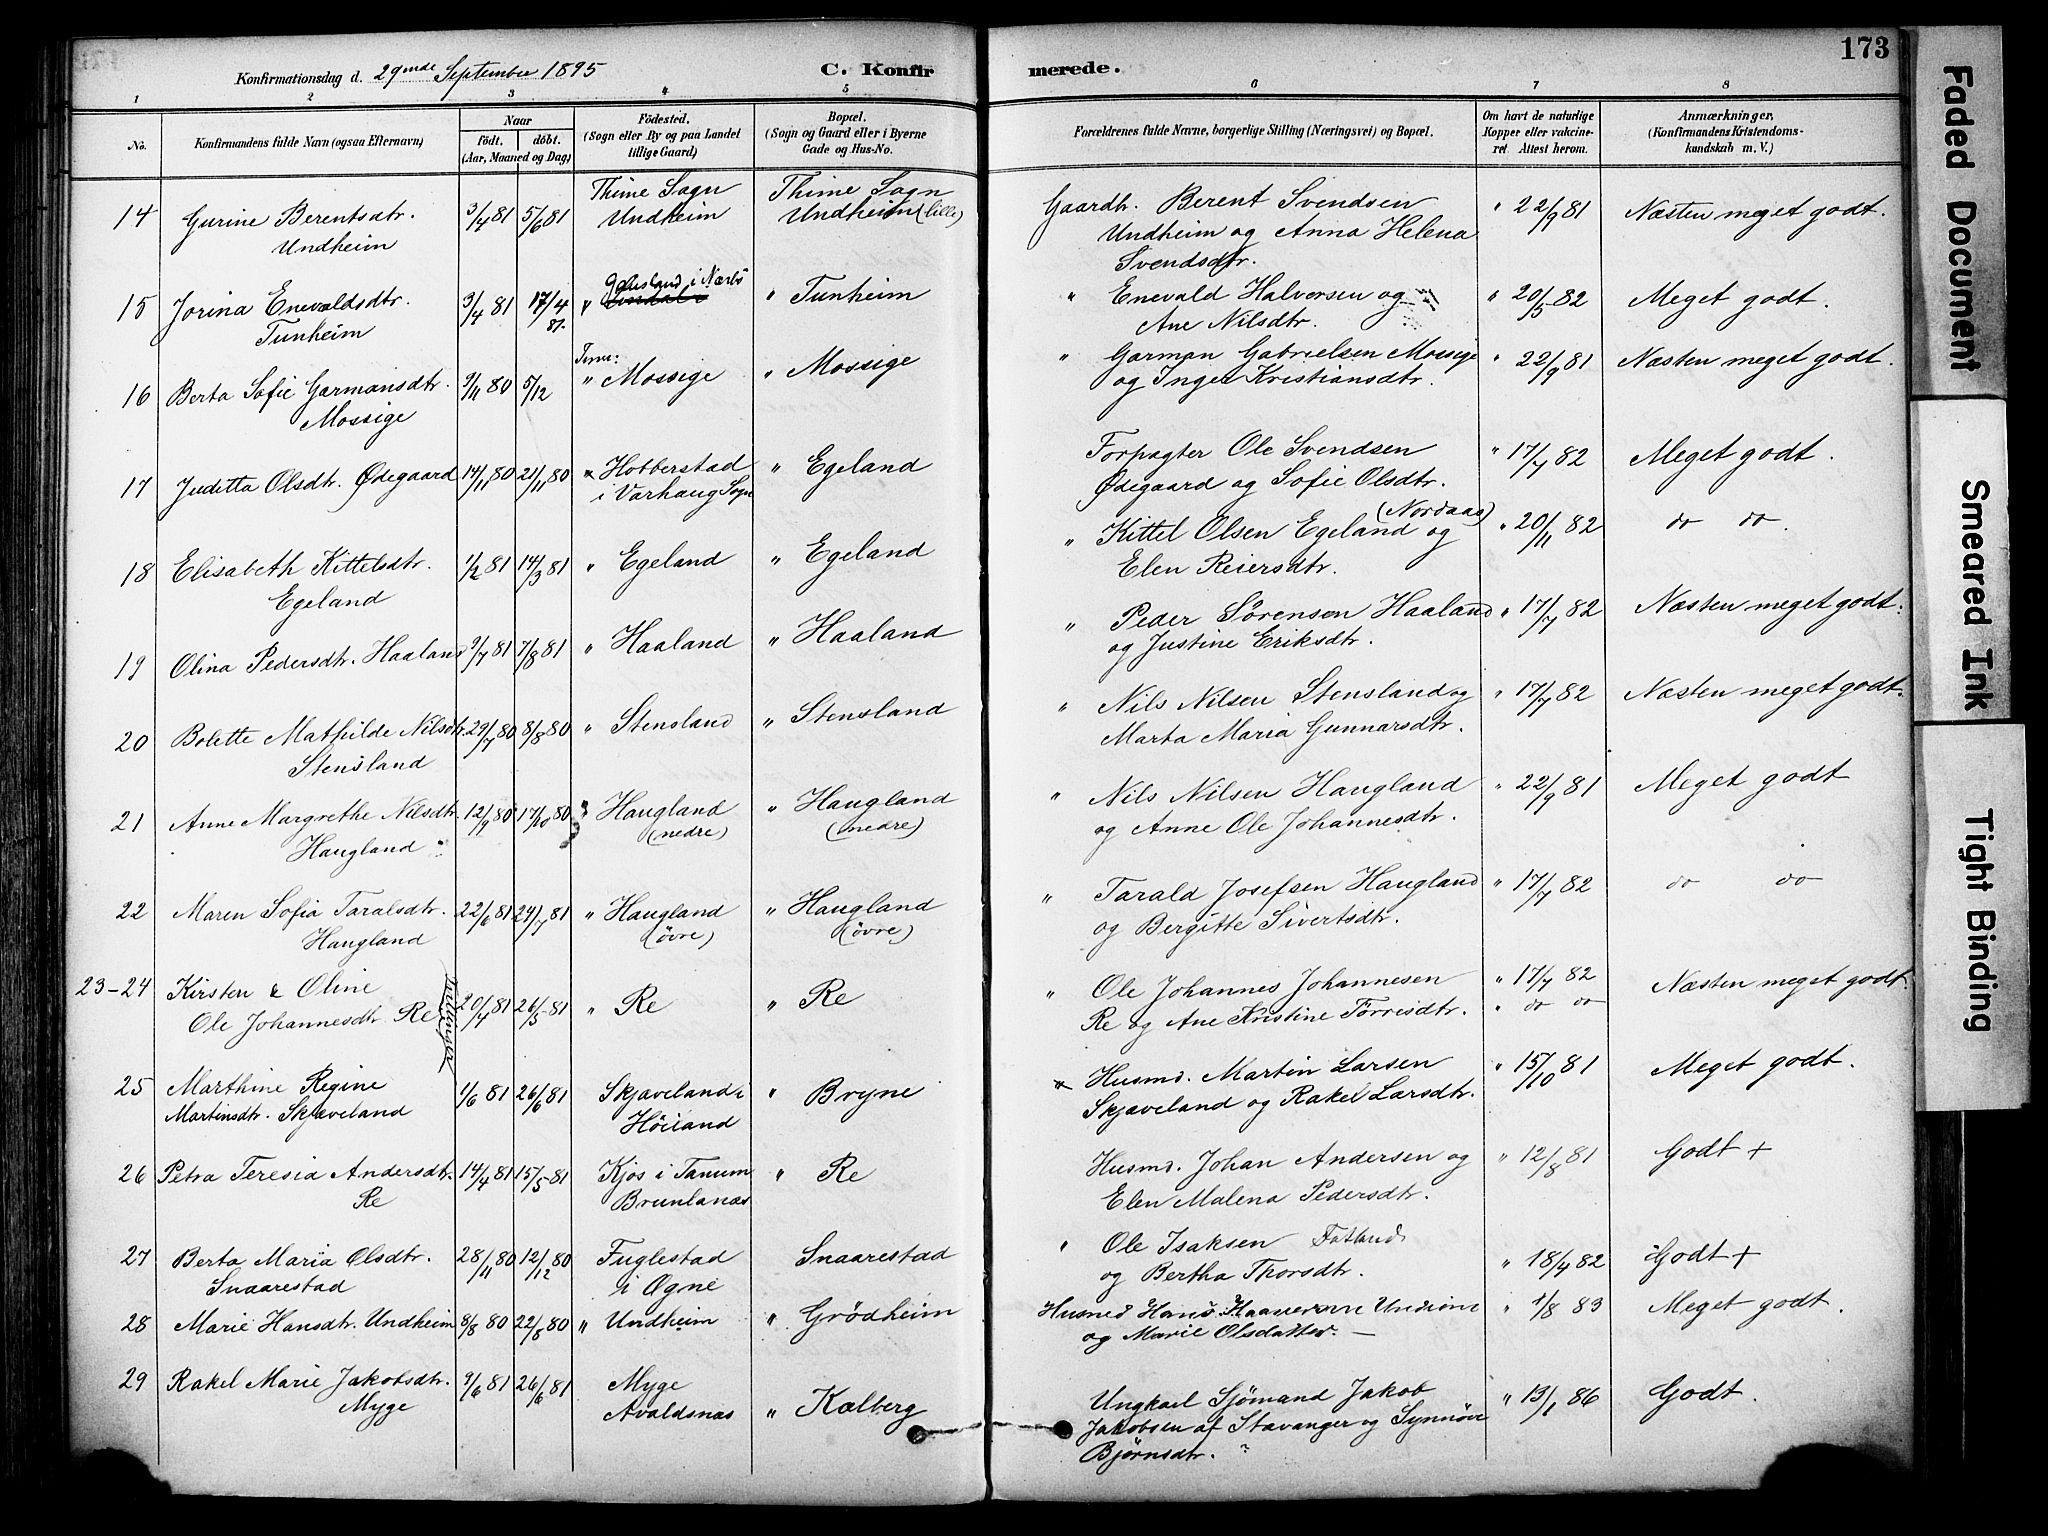 173
Konfirmationsdag d. 29nde September 1895 C. Konfirmerede.
1 2 3 4 5 6 7 8
No. Konfirmandens fulde Navn (ogsaa Efternavn) Naar födt. döbt. (Aar, Maaned og Dag) Födested. (Sogn eller By og paa Landet tillige Gaard) Bopæl. (Sogn og Gaard eller i Byerne Gade og Hus-No. Forældrenes fulde Navne, borgerlige Stilling (Næringsvei) og Bopæl. Om havt de naturlige Kopper eller vakcineret. Attest herom. Anmærkninger, (Konfirmandens Kristendomskundskab m. V.)
14 Gurine Berentsdtr. 3/4 81 5/6 81 Thime Sogn Undheim Thime Sogn Undheim (lille) Gaardbr. Berent Svendsen " 22/9 81 Næsten meget godt.
Undheim Undheim og Anna Helena
Svendsdtr.
15 Jorina Enevaldsdtr. 3/4 81 17/4 81. " i Nærbö " Tunheim " Enevald Halversen og " 20/5 82 Meget godt.
Tunheim Ane Nilsdtr.
16 Berta Sofie Garmansdtr. 9/11 80 5/12 " Mossige " Mossige " Garman Gabrielsen Mossige " 22/9 81 Næsten meget godt.
Mossige og Inger Kristiansdtr.
17 Juditta Olsdtr. Ødegaard 14/11 80 21/11 80 Hobberstad " Egeland Forpagter Ole Svendsen " 17/7 82 Meget godt.
i Varhaug Sogn Ødegaard og Sofie Olsdtr.
18 Elisabeth Kittelsdtr. 1/2 81 14/3 81 " Egeland " Egeland " Kittel Olsen Egeland (Nordaas) og " 20/11 82 do do.
Egeland Elen Reiersdtr.
19 Olina Pedersdtr. Haaland 2/7 81 7/8 81 " Haaland " Haaland " Peder Sörensen Haaland " 17/7 82 Næsten meget godt.
og Justine Eriksdtr.
20 Bolette Mathilde Nilsdtr. 29/7 80 8/8 80 " Stensland " Stensland " Nils Nilsen Stensland og " 17/7 82 Næsten meget godt.
Stensland Marta Maria Gunnarsdtr.
21 Anne Margrethe Nilsdtr. 12/9 80 17/10 80 " Haugland " Haugland " Nils Nilsen Haugland " 22/9 81 Meget godt
Haugland (nedre) (nedre) og Anne Ole Johannesdtr.
22 Maren Sofia Taralsdtr. 22/6 81 24/7 81 " Haugland " Haugland " Tarald Josefsen Haugland " 17/7 82 do do
Haugland (övre) (övre) og Bergitte Sivertsdtr.
23-24 Kirsten & Oline 20/4 81 26/5 81 " Re " Re " Ole Johannes Johannesen " 17/7 82 Næsten meget godt.
Ole Johannesdtr. Re Tvillinger Re og Ane Kristine Torrisdtr. " do do
25 Marthine Regine 1/6 81 26/6 81 Skjæveland i " Bryne " Husmd. Martin Larsen " 15/10 81 Meget godt.
Martinsdtr. Skjæveland Höiland Skjæveland og Rakel Larsdtr.
26 Petra Teresia Andersdtr. 14/4 81 15/5 81 Kjos i Tanum " Re Husmd. Johan Andersen og " 12/8 81 Godt +
Re Brunlanæs Elen Malena Pedersdtr.
27 Berta Maria Olsdtr. 28/11 80 12/12 80 Fuglestad Snaarestad " Ole Isaksen Fotland " 18/4 82 Godt +
Snaarestad i Ogne og Bertha Thorsdtr.
28 Marie Hansdtr. Undheim 8/8 80 22/8 80 " Undheim " Grödheim Husmd Hans Undheim " 1/8 83 Meget godt.
og Marie Olsdatter. —
29 Rakel Marie Jakobsdtr. 9/6 81 26/6 81 Myge " Kalberg Ungkarl Sjömand Jakob " 13/1 86 Godt.
Myge Avaldsnæs Jakobsen af Stavanger og Synnöve
Björnsdtr.
Faded Document
Smeared Ink
Tight Binding